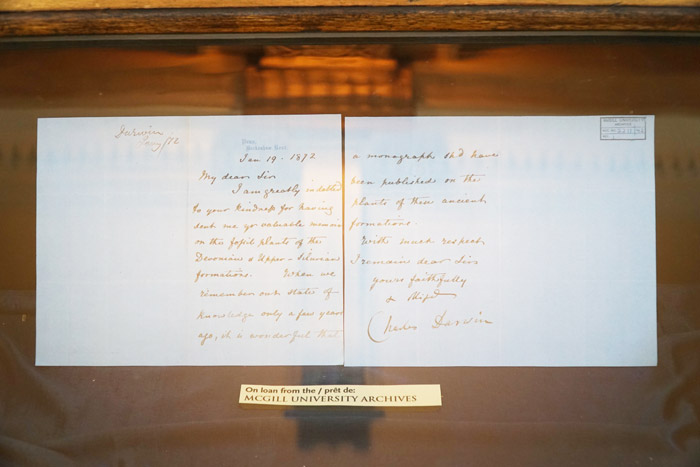 Darwin
Jany/72
Down,
Beckenham Kent.
Jan 19. 1872
My dear Sir
I am greatly indebted
to your kindness for having
sent me yr valuable memoir
on the fossil plants of the
Devonian & Upper-Silurian
formations. When we
remember our state of
knowledge only a few years
ago, it is wonderful that
a monograph shd have
been published on the
plants of these ancient
formations.
With much respect
I remain dear Sir
yours faithfully
& obliged
Charles Darwin
MCGILL UNIVERSITY
ARCHIVES
On loan from the / prêt de:
MCGILL UNIVERSITY ARCHIVES